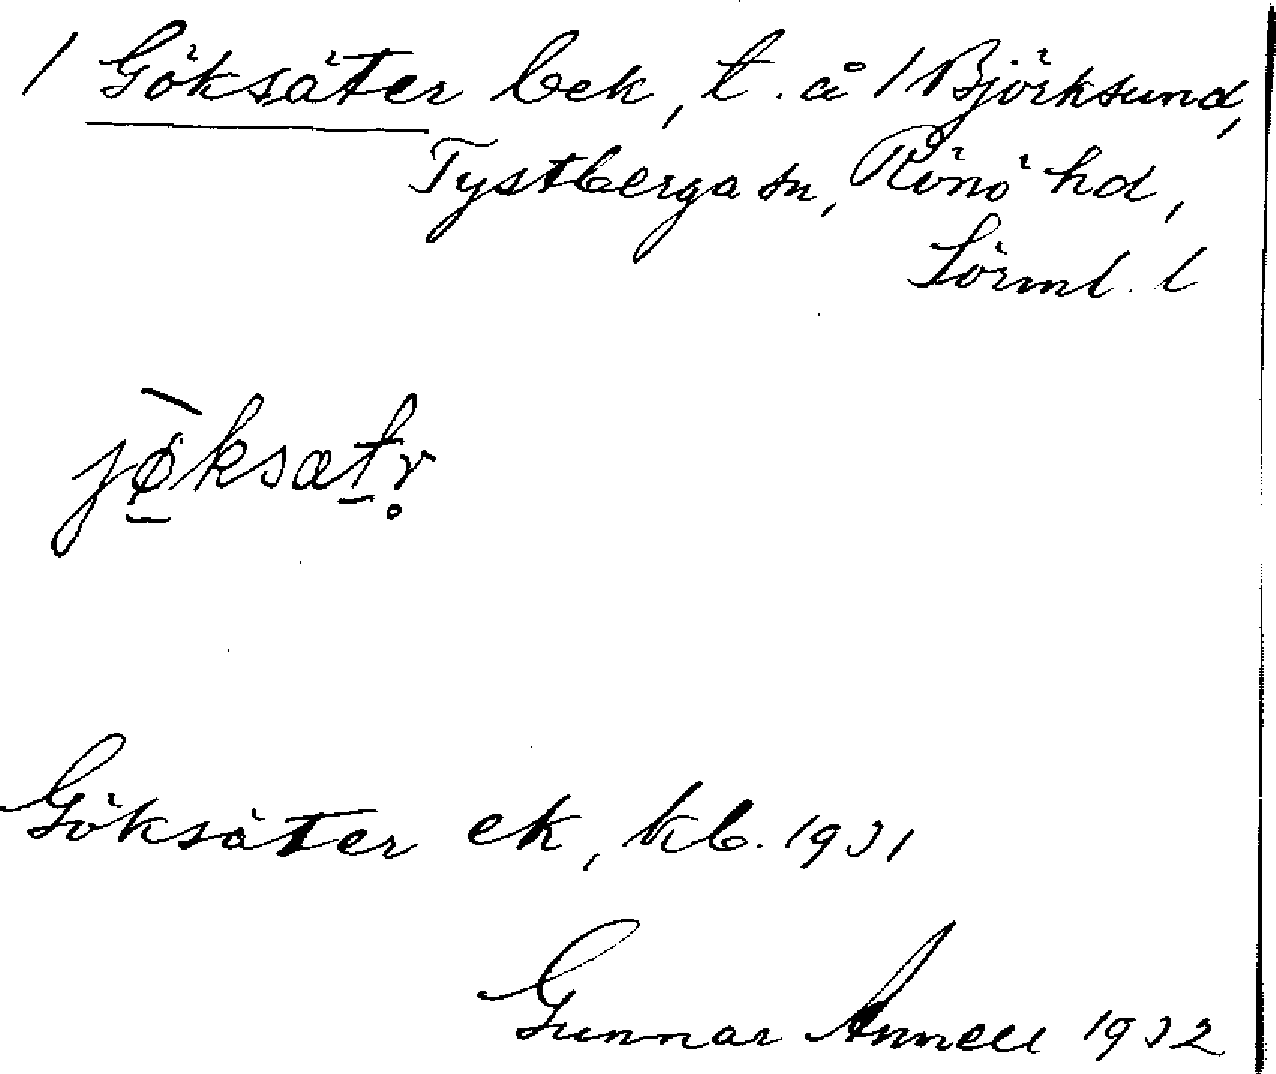 / Göksäter bek, t. å / Björksund,
Tystberga sn, Rönö hd,
Sörml. l
jø̀ksatr̥
Göksäter ek, kb. 1931
Gunnar Annell 1932